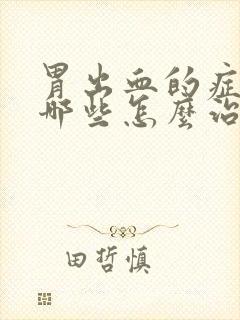 胃出血的症
哪些怎麼治
田哲慎